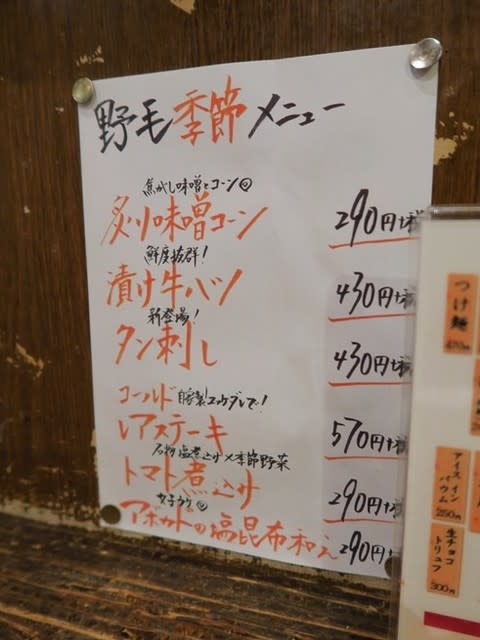 野毛季節メニュー
焦がし味噌とコーン
炙り味噌コーン 290円+税
鮮度抜群!
漬け牛ハツ 430円+税
新登場!
タン刺し 430円+税
コールド 自家製ユッケダレで!
レアステーキ 570円+税
煮込み×季節野菜
トマト煮込み 290円+税
女子ウケ
アボカドの塩昆布和え 290円+
つけ麺
アイスイン
バウム
250円
生チョコ
トリュフ
300円